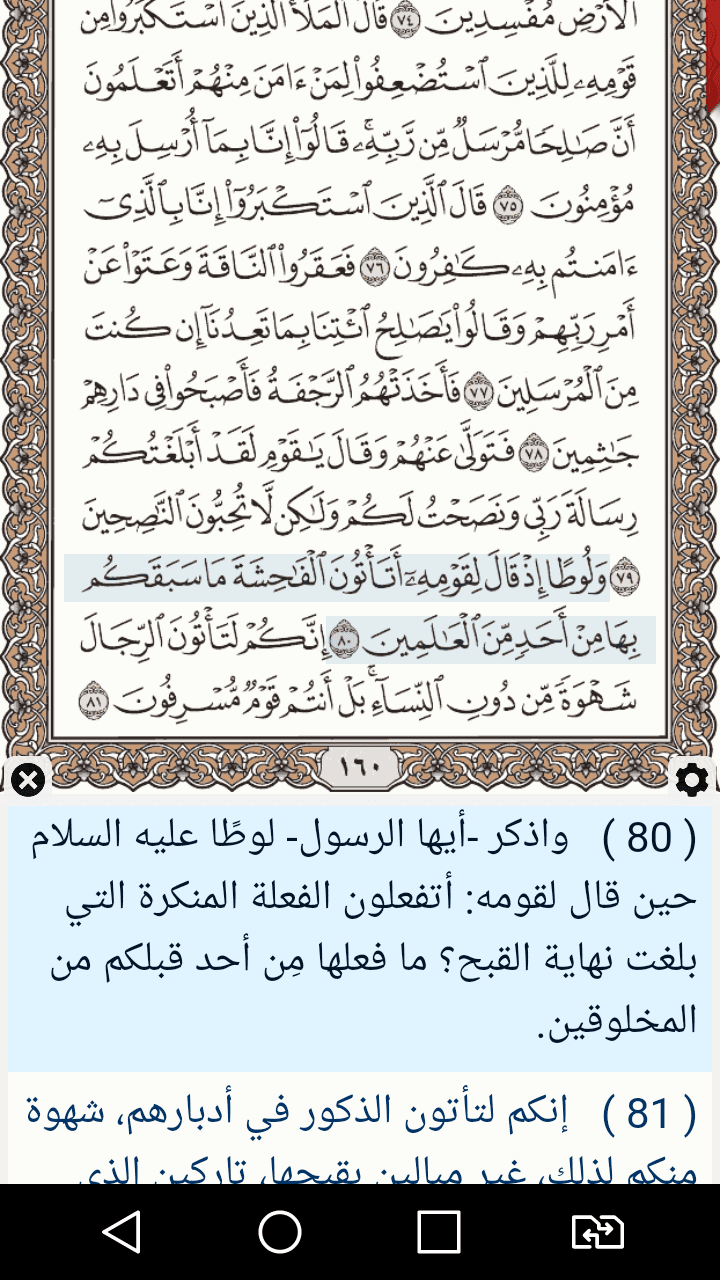 ٱلۡأَرۡضِ مُفۡسِدِينَ ٧٤ قَالَ ٱلۡمَلَأُ ٱلَّذِينَ ٱسۡتَكۡبَرُواْ مِن
قَوۡمِهِۦ لِلَّذِينَ ٱسۡتُضۡعِفُواْ لِمَنۡ ءَامَنَ مِنۡهُمۡ أَتَعۡلَمُونَ
أَنَّ صَٰلِحٗا مُّرۡسَلٞ مِّن رَّبِّهِۦۚ قَالُوٓاْ إِنَّا بِمَآ أُرۡسِلَ بِهِۦ
مُؤۡمِنُونَ ٧٥ قَالَ ٱلَّذِينَ ٱسۡتَكۡبَرُوٓاْ إِنَّا بِٱلَّذِيٓ
ءَامَنتُم بِهِۦ كَٰفِرُونَ ٧٦ فَعَقَرُواْ ٱلنَّاقَةَ وَعَتَوۡاْ عَنۡ
أَمۡرِ رَبِّهِمۡ وَقَالُواْ يَٰصَٰلِحُ ٱئۡتِنَا بِمَا تَعِدُنَآ إِن كُنتَ
مِنَ ٱلۡمُرۡسَلِينَ ٧٧ فَأَخَذَتۡهُمُ ٱلرَّجۡفَةُ فَأَصۡبَحُواْ فِي دَارِهِمۡ
جَٰثِمِينَ ٧٨ فَتَوَلَّىٰ عَنۡهُمۡ وَقَالَ يَٰقَوۡمِ لَقَدۡ أَبۡلَغۡتُكُمۡ
رِسَالَةَ رَبِّي وَنَصَحۡتُ لَكُمۡ وَلَٰكِن لَّا تُحِبُّونَ ٱلنَّٰصِحِينَ
٧٩ وَلُوطًا إِذۡ قَالَ لِقَوۡمِهِۦٓ أَتَأۡتُونَ ٱلۡفَٰحِشَةَ مَا سَبَقَكُم
بِهَا مِنۡ أَحَدٖ مِّنَ ٱلۡعَٰلَمِينَ ٨٠ إِنَّكُمۡ لَتَأۡتُونَ ٱلرِّجَالَ
شَهۡوَةٗ مِّن دُونِ ٱلنِّسَآءِۚ بَلۡ أَنتُمۡ قَوۡمٞ مُّسۡرِفُونَ ٨١
١٦٠
( 80 ) واذكر -أيها الرسول- لوطًا عليه السلام
حين قال لقومه: أتفعلون الفعلة المنكرة التي
بلغت نهاية القبح؟ ما فعلها مِن أحد قبلكم من
المخلوقين.
( 81 ) إنكم لتأتون الذكور في أدبارهم، شهوة
منكم لذلك، غير مبالين بقبحها، تاركين الذي